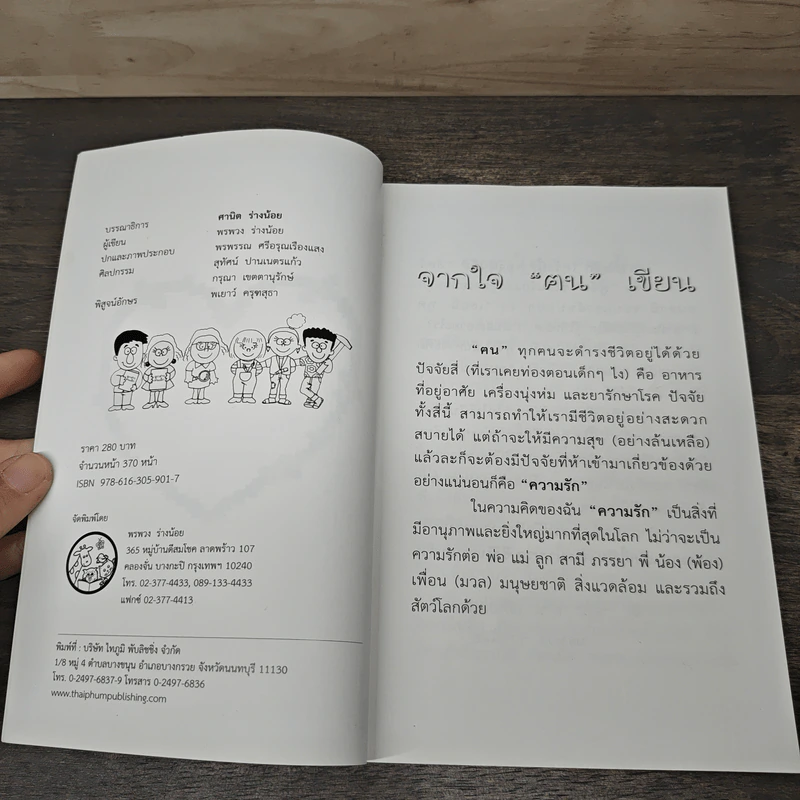 บรรณาธิการ ศานิต ร่างน้อย
ผู้เขียน พรพวง ร่างน้อย
ปกและภาพประกอบ พรพรรณ ศรีอรุณเรืองแสง
ศิลปกรรม สุทัศน์ ปานเนตรแก้ว
กรุณา เขตตานุรักษ์
พิสูจน์อักษร พเยาว์ ครุฑสุธา
ราคา 280 บาท
จำนวนหน้า 370 หน้า
ISBN 978-616-305-901-7
จัดพิมพ์โดย
พรพวง ร่างน้อย
365 หมู่บ้านดีสมโชค ลาดพร้าว 107
คลองจั่น บางกะปิ กรุงเทพฯ 10240
โทร. 02-377-4433, 089-133-4433
แฟกซ์ 02-377-4413
พิมพ์ที่ : บริษัท ไทภูมิ พับลิชชิ่ง จำกัด
1/8 หมู่ 4 ตำบลบางขนุน อำเภอบางกรวย จังหวัดนนทบุรี 11130
โทร. 0-2497-6837-9 โทรสาร 0-2497-6836
www.thaiphumpublishing.com
จากใจ "ฅน" เขียน
"คน" ทุกคนจะดำรงชีวิตอยู่ได้ด้วย
ปัจจัยสี่ (ที่เราเคยท่องตอนเด็กๆ ไง) คือ อาหาร
ที่อยู่อาศัย เครื่องนุ่งห่ม และยารักษาโรค ปัจจัย
ทั้งสี่นี้ สามารถทำให้เรามีชีวิตอยู่อย่างสะดวก
สบายได้ แต่ถ้าจะให้มีความสุข (อย่างล้นเหลือ)
แล้วละก็จะต้องมีปัจจัยที่ห้าเข้ามาเกี่ยวข้องด้วย
อย่างแน่นอนก็คือ "ความรัก"
ในความคิดของฉัน "ความรัก" เป็นสิ่งที่
มีอานุภาพและยิ่งใหญ่มากที่สุดในโลก ไม่ว่าจะเป็น
ความรักต่อ พ่อ แม่ ลูก สามี ภรรยา พี่ น้อง (พ้อง)
เพื่อน (มวล) มนุษยชาติ สิ่งแวดล้อม และรวมถึง
สัตว์โลกด้วย